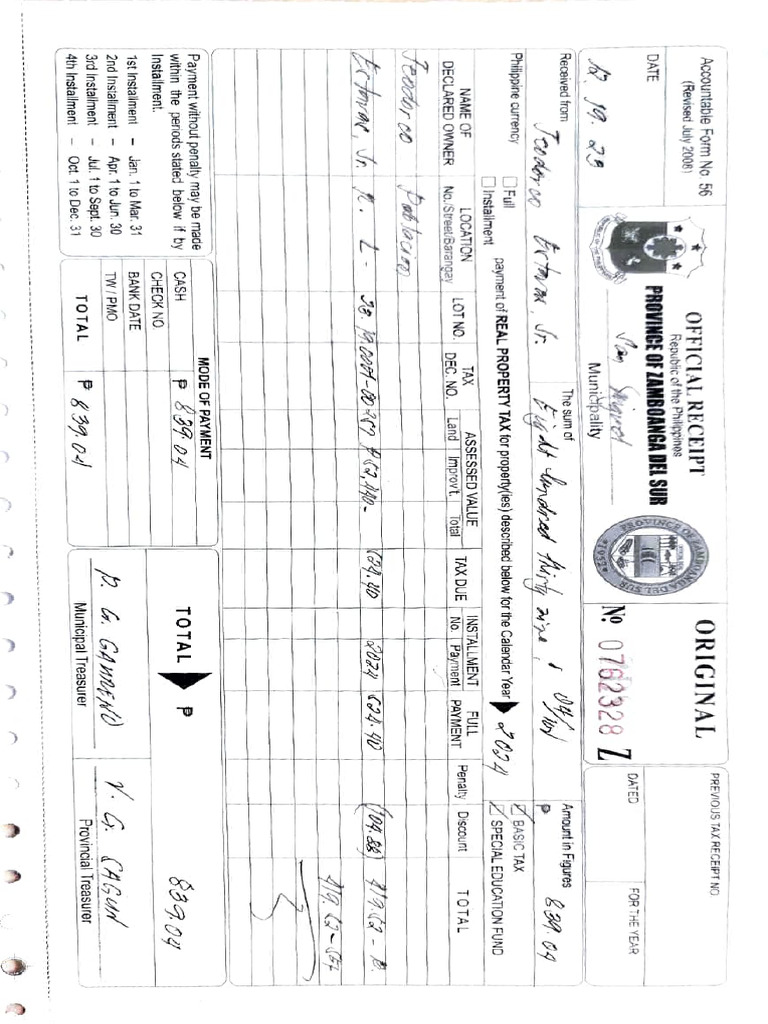 Accountable Form No. 56
(Revised July 2008)
OFFICIAL RECEIPT
Republic of the Philippines
PROVINCE OF ZAMBOANGA DEL SUR
San Miguel
Municipality
PROVINCE OF ZAMBOANGA DEL SUR
1952
ORIGINAL
No. 0762328 Z
PREVIOUS TAX RECEIPT NO.
DATE
12.19.23
DATED
FOR THE YEAR
Received from Teodorco Estorac, Jr. The sum of Eight hundred thirty nine & 04/100 Amount in Figures ₱ 839.04
Philippine currency
Full
Installment
payment of REAL PROPERTY TAX for property(ies) described below for the Calendar Year 2024
BASIC TAX
SPECIAL EDUCATION FUND
NAME OF DECLARED OWNER
LOCATION No./Street/Barangay
LOT NO.
TAX DEC. NO.
ASSESSED VALUE
Land Improv't. Total
TAX DUE
INSTALLMENT
No. Payment
FULL PAYMENT
Penalty
Discount
TOTAL
Teodorco Poblacion
Estorac, Jr. R. L - ₱52,440- 524.40 2024 524.40 (104.88) 419.52-B.
419.52-SEF
Payment without penalty may be made within the periods stated below if by Installment.
1st Installment – Jan. 1 to Mar. 31
2nd Installment – Apr. 1 to Jun. 30
3rd Installment – Jul. 1 to Sept. 30
4th Installment – Oct. 1 to Dec. 31
MODE OF PAYMENT
CASH ₱ 839.04
CHECK NO.
BANK DATE
TW / PMO
TOTAL ₱ 839.04
TOTAL ₱ 839.04
Municipal Treasurer
V. G. CAGUN
Provincial Treasurer